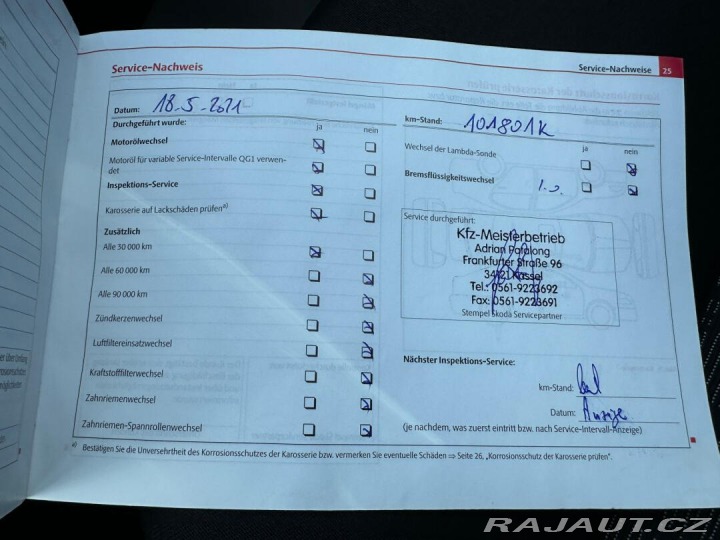 Service-Nachweis
Service-Nachweise 25
Datum: 18.5.2021
km-Stand: 101801k
Durchgeführt wurde: ja nein
ja nein
Motorölwechsel
Wechsel der Lambda-Sonde
Motoröl für variable Service-Intervalle QG1 verwen-
det
Bremsflüssigkeitswechsel
Inspektions-Service
Karosserie auf Lackschäden prüfen a)
Service durchgeführt:
Kfz-Meisterbetrieb
Frankfurter Straße 96
Tel.: 0561-9223692
Fax: 0561-9223691
Stempel Škoda Servicepartner
Zusätzlich
Alle 30 000 km
Alle 60 000 km
Alle 90 000 km
Zündkerzenwechsel
Luftfiltereinsatzwechsel
Kraftstofffilterwechsel
Zahnriemenwechsel
Zahnriemen-Spannrollenwechsel
Nächster Inspektions-Service:
km-Stand:
Datum: Anzeige
(je nachdem, was zuerst eintritt bzw. nach Service-Intervall-Anzeige)
a) Bestätigen Sie die Unversehrtheit des Korrosionsschutzes der Karosserie bzw. vermerken Sie eventuelle Schäden ⇒ Seite 26, „Korrosionsschutz der Karosserie prüfen".
RAJAUT.CZ